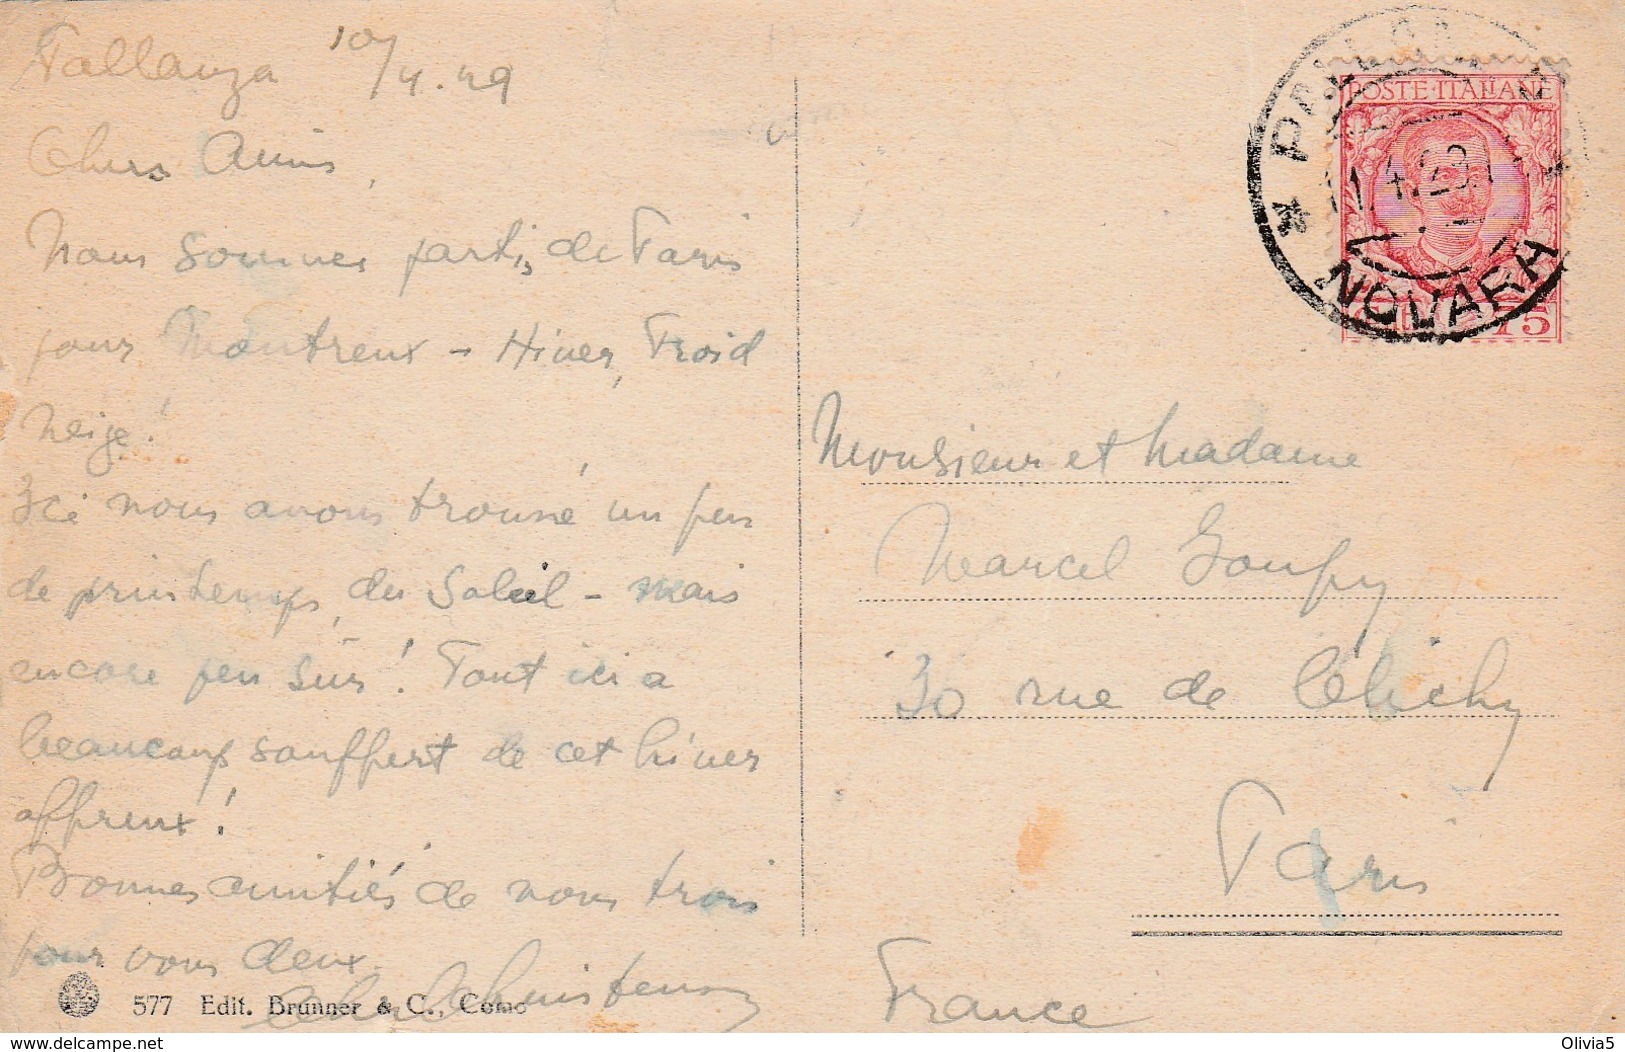 Pallanza 10/4.29
Chers Amis,
Nous sommes partis de Paris
pour Montreux - Hiver, Froid
Neige!
Ici nous avons trouvé un peu
de printemps, du Soleil - mais
encore peu sûr! Tout ici a
beaucoup souffert de cet hiver
affreux!
Bonnes amitiés de nous trois
pour vous deux.
577 Edit. Brunner & C., Como
POSTE·ITALIANE
4.29
NOVARA
75
Monsieur et Madame
Marcel Goupy
30 rue de Clichy
Paris
France
delcampe.net
Olivia5